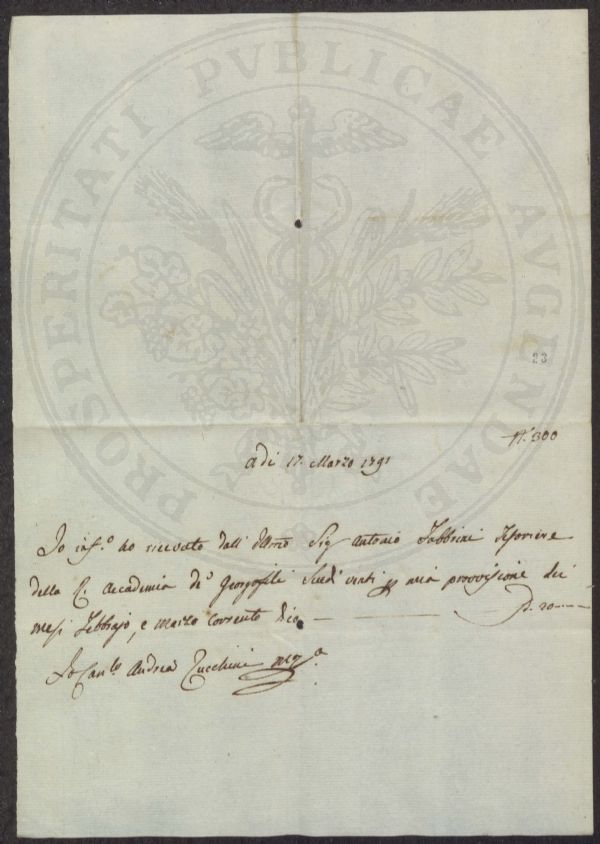 PROSPERITATI PVBLICAE AVGENDAE
23
N.° 300
Adi 17. Marzo 1791
Io inf.° ho ricevuto dall' Illmo Sig Antonio Fabbrini Tesoriere
della R. Accademia de' Georgofili Scudi venti p mia provvisione dei
mesi Febbrajo, e Marzo corrente dico — 20
Io Can.co Andrea Zucchini